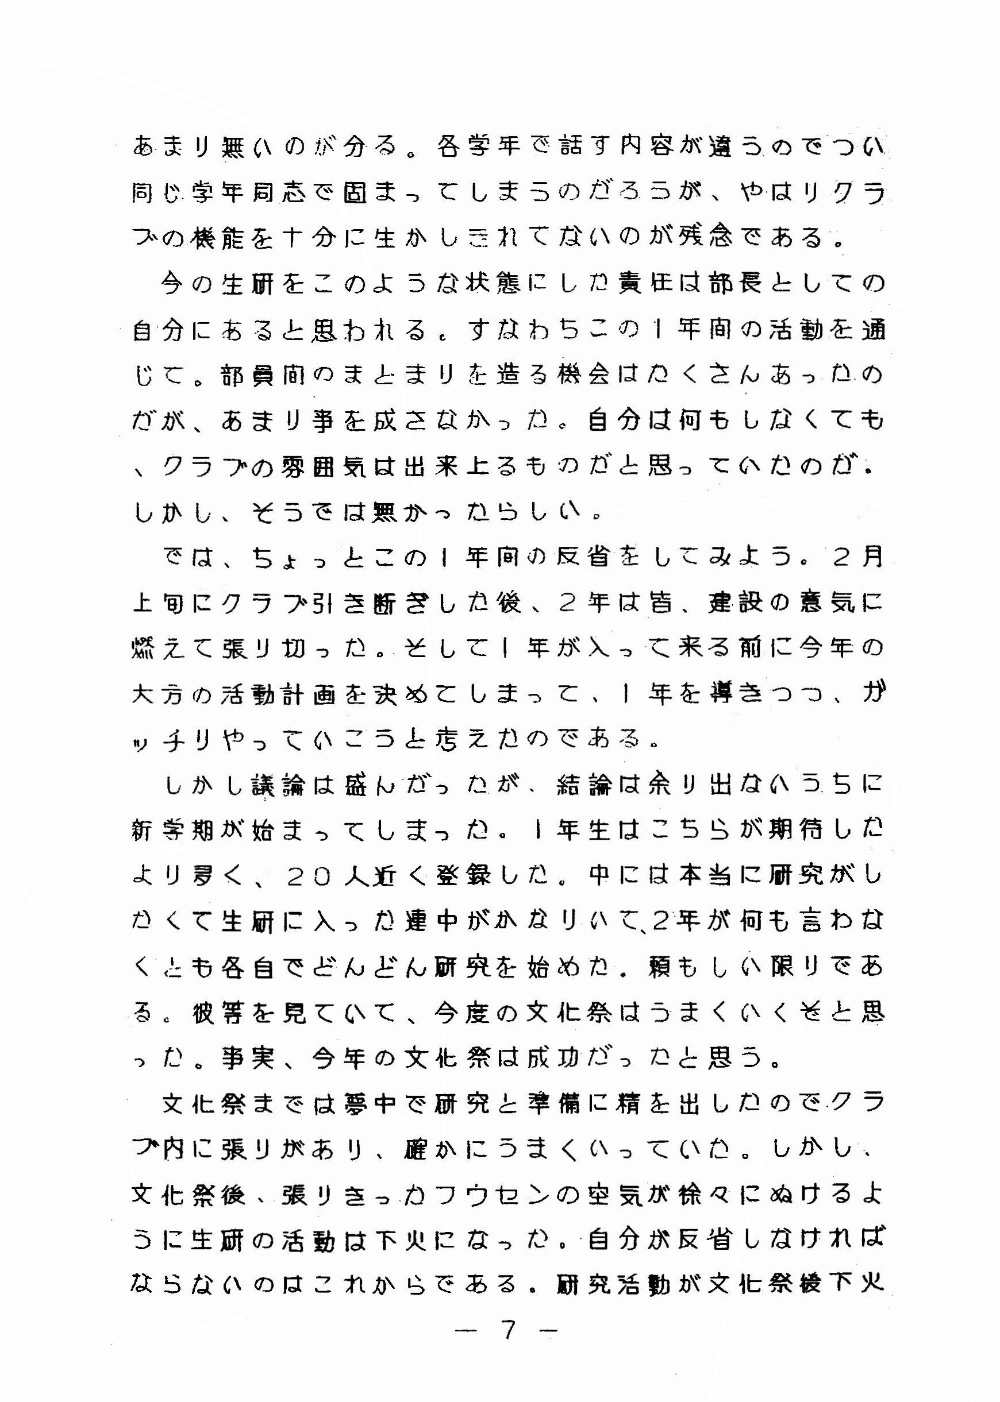 あまり無いのが分る。各学年で話す内容が違うのでつい
同じ学年同志で固まってしまうのだろうが、やはりクラ
ブの機能を十分に生かしきれてないのが残念である。
今の生研をこのような状態にした責任は部長としての
自分にあると思われる。すなわちこの1年間の活動を通
じて。部員間のまとまりを造る機会はたくさんあったの
だが、あまり事を成さなかった。自分は何もしなくても
、クラブの雰囲気は出来上るものだと思っていたのだ.
しかし、そうでは無かったらしい。
では、ちょっとこの1年間の反省をしてみよう。2月
上旬にクラブ引き断ぎした後、2年は皆、建設の意気に
燃えて張り切った。そして1年が入って来る前に今年の
大方の活動計画を決めてしまって、1年を導きつつ、ガ
ッチリやっていこうと考えたのである。
しかし議論は盛んだったが、結論は余り出ないうちに
新学期が始まってしまった。1年生はこちらが期待した
より多く、20人近く登録した。中には本当に研究がし
たくて生研に入った連中がかなりいて、2年が何も言わな
くとも各自でどんどん研究を始めた.頼もしい限りであ
る。彼等を見ていて、今度の文化祭はうまくいくぞと思
った。事実、今年の文化祭は成功だったと思う。
文化祭までは夢中で研究と準備に精を出したのでクラ
ブ内に張りがあり、確かにうまくいっていた。しかし、
文化祭後、張りきったフウセンの空気が徐々にぬけるよ
うに生研の活動は下火になった。自分が反省しなければ
ならないのはこれからである.研究活動が文化祭後下火
— 7 —